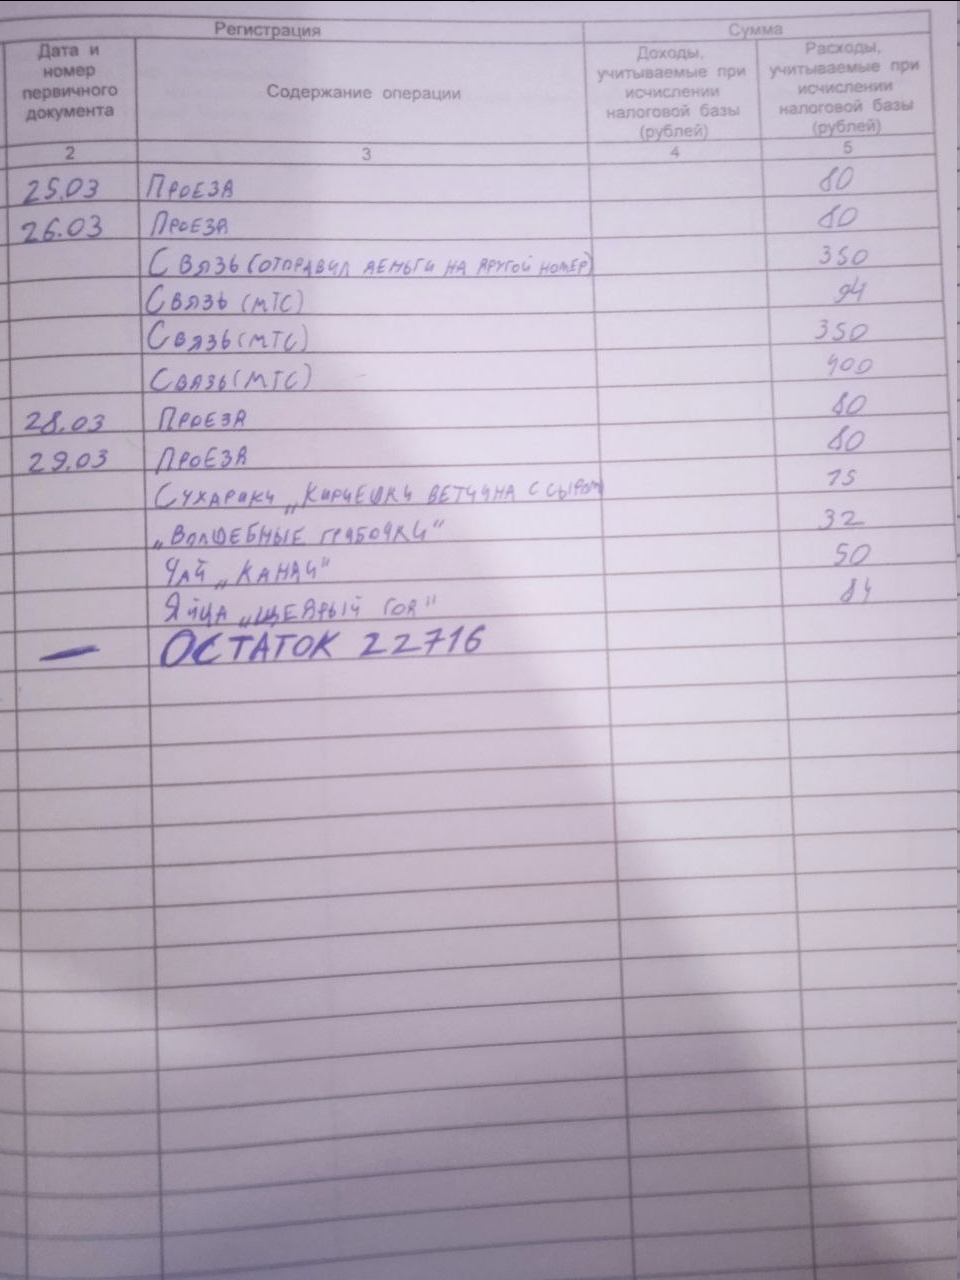 Регистрация Сумма
Дата и номер первичного документа Содержание операции Доходы, учитываемые при исчислении налоговой базы (рублей) Расходы, учитываемые при исчислении налоговой базы (рублей)
2 3 4 5
25.03 ПРОЕЗД 80
26.03 ПРОЕЗД 80
СВЯЗЬ (ОТПРАВИЛ ДЕНЬГИ НА ДРУГОЙ НОМЕР) 350
СВЯЗЬ (МТС) 94
СВЯЗЬ (МТС) 350
СВЯЗЬ (МТС) 400
28.03 ПРОЕЗД 80
29.03 ПРОЕЗД 80
СУХАРИКИ „КИРИЕШКИ ВЕТЧИНА С СЫРОМ 15
„ВОЛШЕБНЫЕ ГРИБОЧКИ" 32
ЧАЙ „КАНДИ" 50
ЯЙЦА „ЩЕДРЫЙ ГОД" 84
— ОСТАТОК 22716